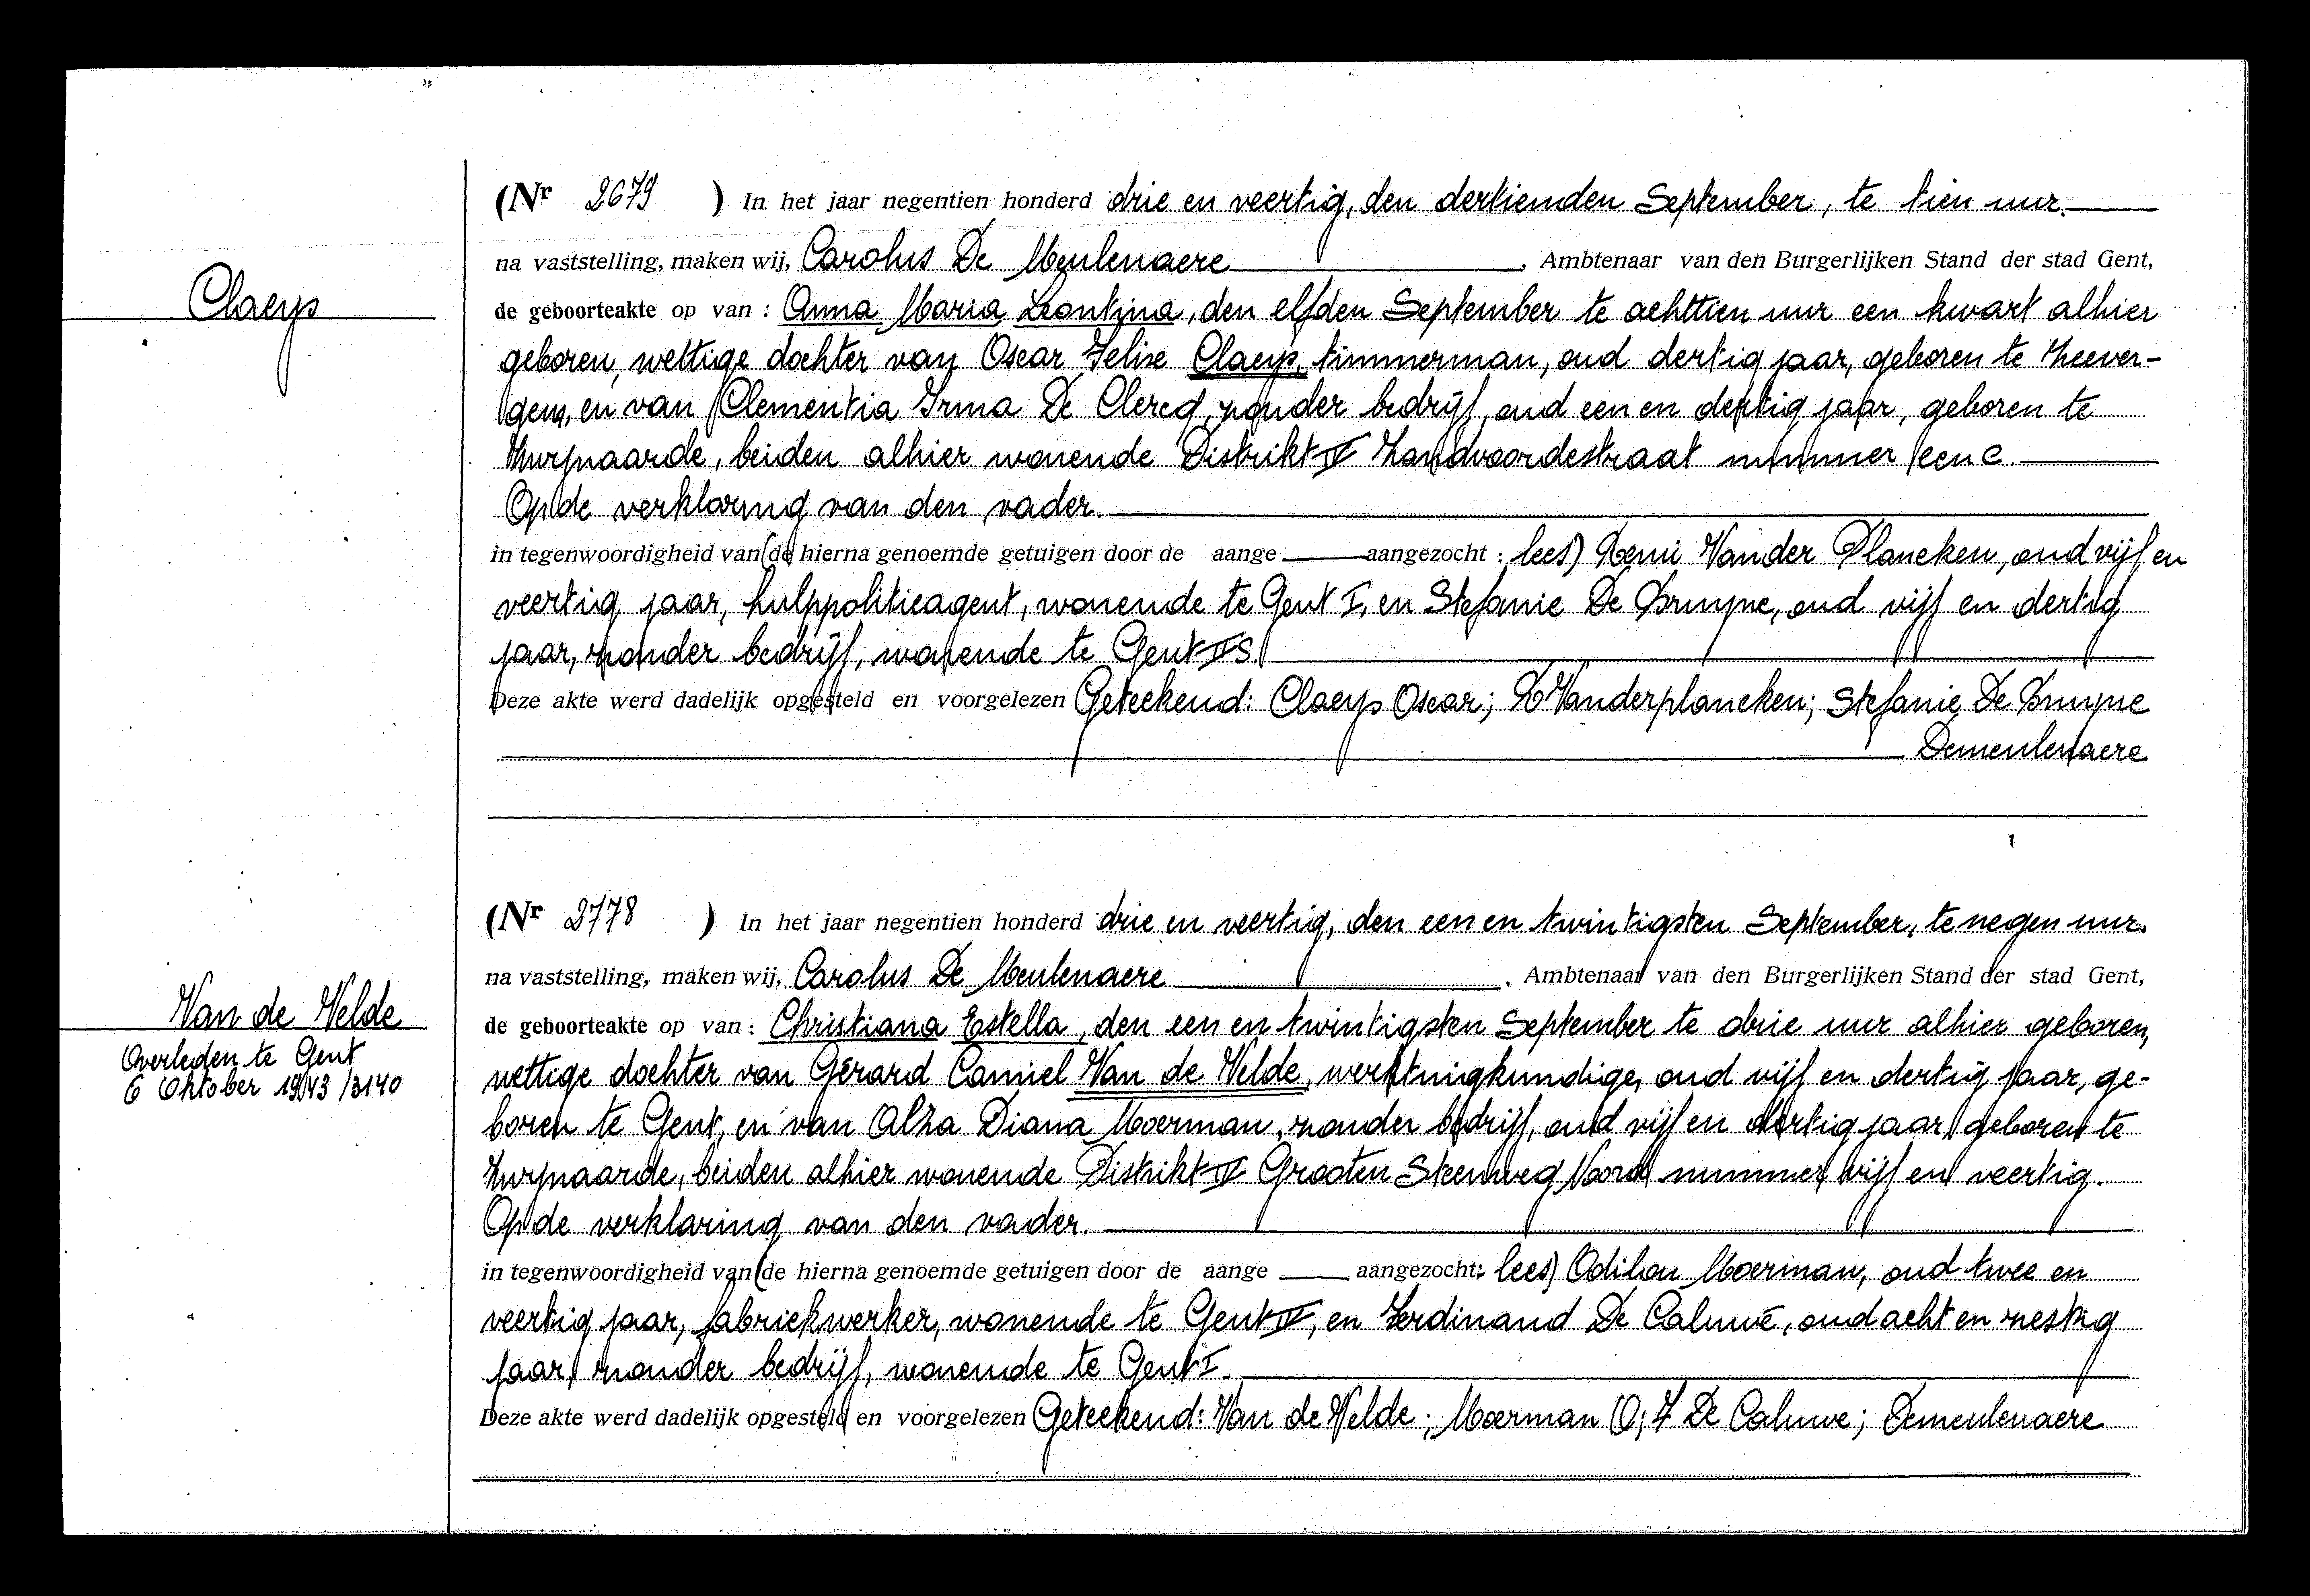 Claeys
(Nr 2679 ) In het jaar negentien honderd drie en veertig, den dertienden September, te tien uur.
na vaststelling, maken wij, Carolus De Meulenaere , Ambtenaar van den Burgerlijken Stand der stad Gent,
de geboorteakte op van : Anna Maria Leontina, den elfden September te achttien uur een kwart alhier
geboren, wettige dochter van Oscar Felix Claeys, timmerman, oud dertig jaar, geboren te
en van Clementia Irma De Clercq, zonder bedrijf, oud een en dertig jaar, geboren te
Zwijnaarde, beiden alhier wonende Distrikt IV Zandvoordestraat nummer een c.
Op de verklaring van den vader.
in tegenwoordigheid van (de hierna genoemde getuigen door de aange aangezocht : lees) Remi Vander Plancken, oud vijf en
veertig jaar, hulppolitieagent, wonende te Gent I, en Stefanie De Bruyne, oud vijf en dertig
jaar, zonder bedrijf, wonende te Gent IIS.
Deze akte werd dadelijk opgesteld en voorgelezen Geteekend: Claeys Oscar; R Vanderplancken; Stefanie De Bruyne
Demeulenaere
Van de Velde
Overleden te Gent
6 Oktober 1943 /3140
(Nr 2778 ) In het jaar negentien honderd drie en veertig, den een en twintigsten September, te negen uur.
na vaststelling, maken wij, Carolus De Meulenaere , Ambtenaar van den Burgerlijken Stand der stad Gent,
de geboorteakte op van : Christiana Estella, den een en twintigsten September te drie uur alhier geboren,
wettige dochter van Gérard Camiel Van de Velde, werktuigkundige, oud vijf en dertig jaar, ge-
boren te Gent, en van Alza Diana Moerman, zonder bedrijf, oud vijf en dertig jaar, geboren te
Zwijnaarde, beiden alhier wonende Distrikt IV Grooten Steenweg Noord nummer vijf en veertig.
Op de verklaring van den vader.
in tegenwoordigheid van (de hierna genoemde getuigen door de aange aangezocht: lees) Odilon Moerman, oud twee en
veertig jaar, fabriekwerker, wonende te Gent IV, en Ferdinand De Caluwé, oud acht en zestig
jaar, zonder bedrijf, wonende te Gent I.
Deze akte werd dadelijk opgesteld en voorgelezen Geteekend: Van de Velde; Moerman O; F De Caluwe; Demeulenaere